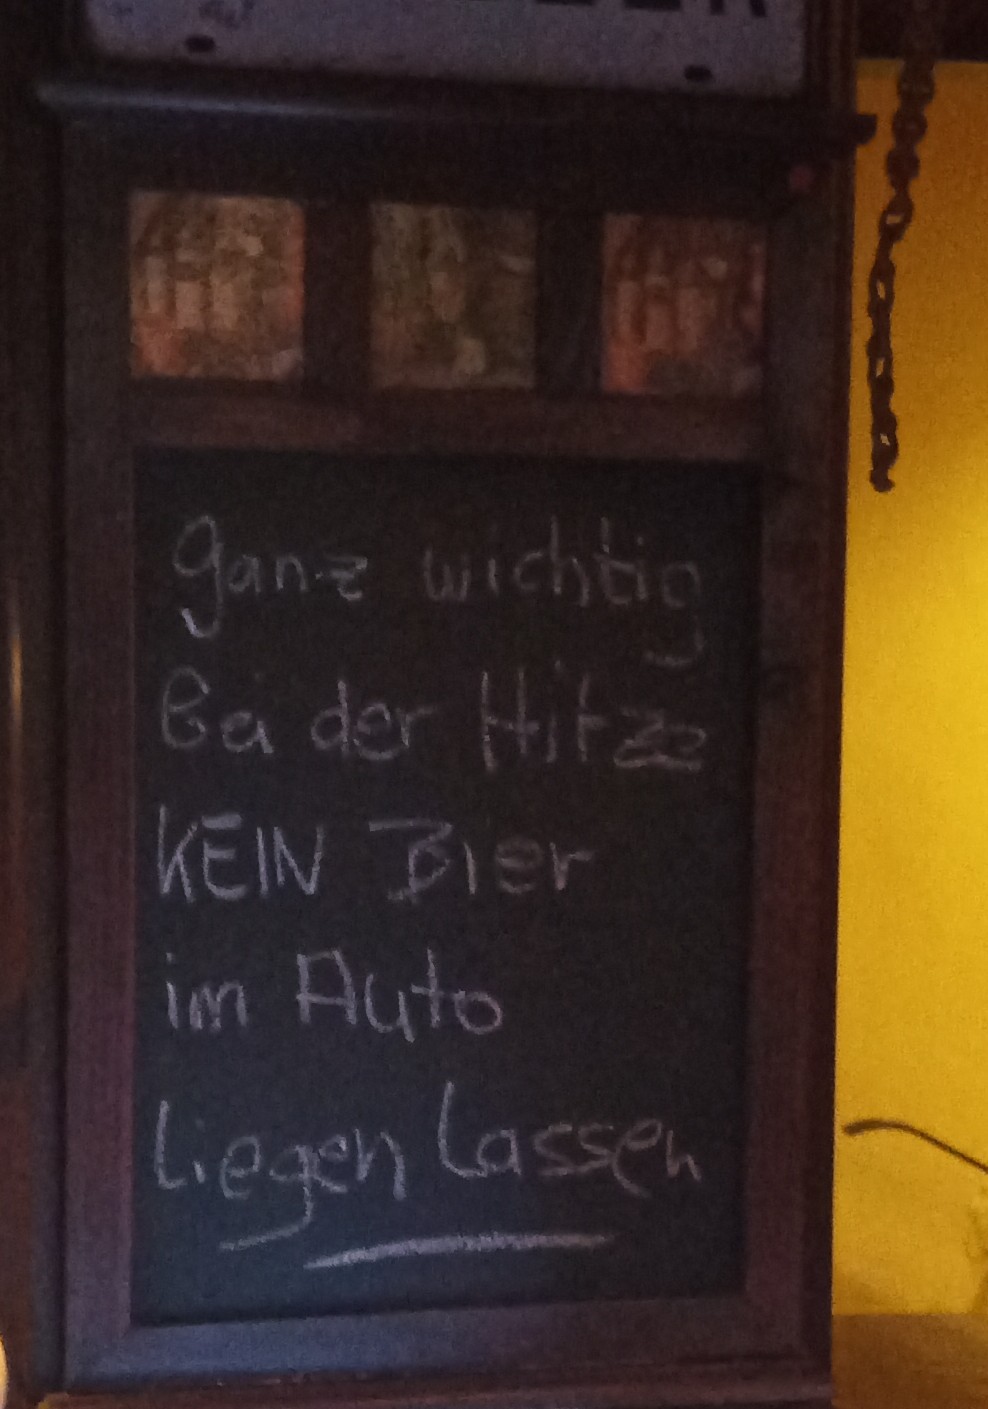 ganz wichtig
Bei der Hitze
KEIN Bier
im Auto
Liegen Lassen